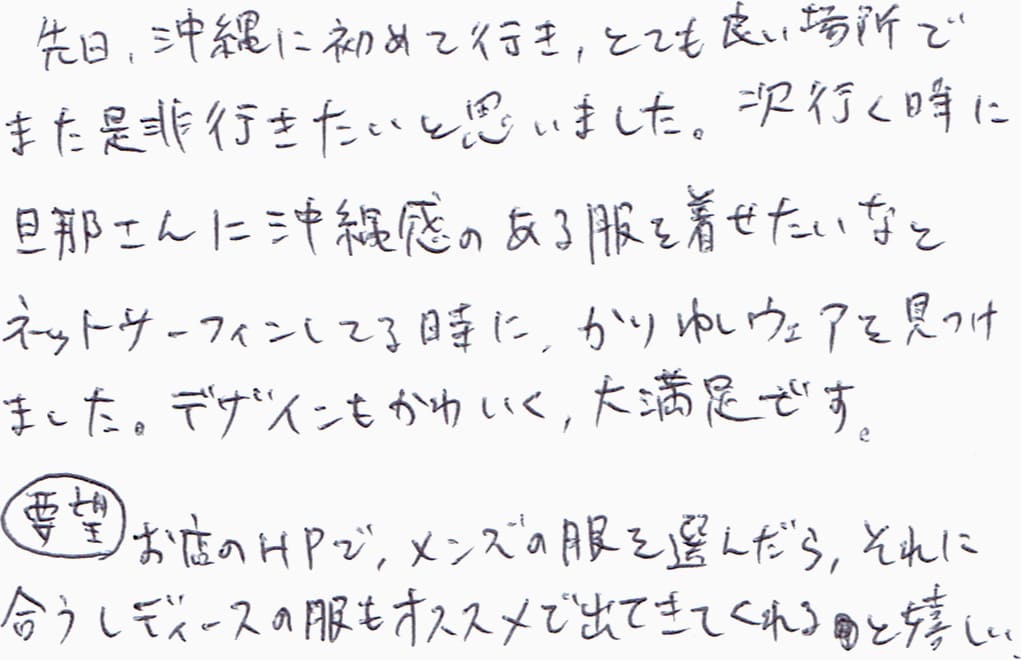 先日、沖縄に初めて行き、とても良い場所で
また是非行きたいと思いました。次行く時に
旦那さんに沖縄感のある服を着せたいなと
ネットサーフィンしてる時に、かりゆしウェアを見つけ
ました。デザインもかわいく、大満足です。
要望 お店のHPで、メンズの服を選んだら、それに
合うレディースの服もオススメで出てきてくれると嬉しい、